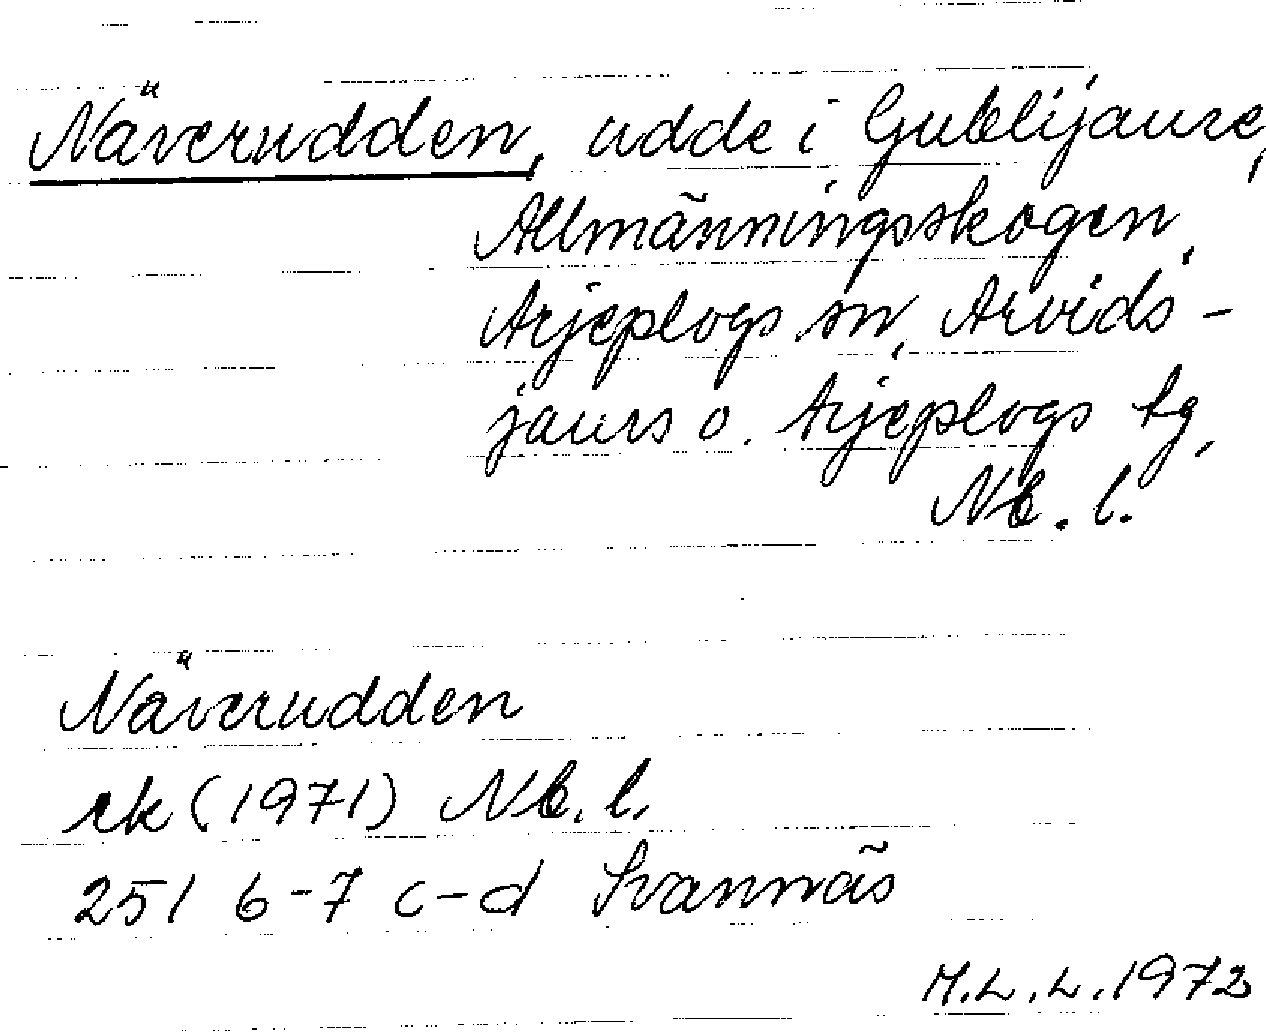 Näverudden, udde i Gublijaure,
Allmänningsskogen,
Arjeplogs sn, Arvids-
jaurs o. Arjeplogs tg,
Nb. l.
Näverudden
rk (1971) Nb. l.
251 6-7 c-d Svannäs
M.L.L. 1972